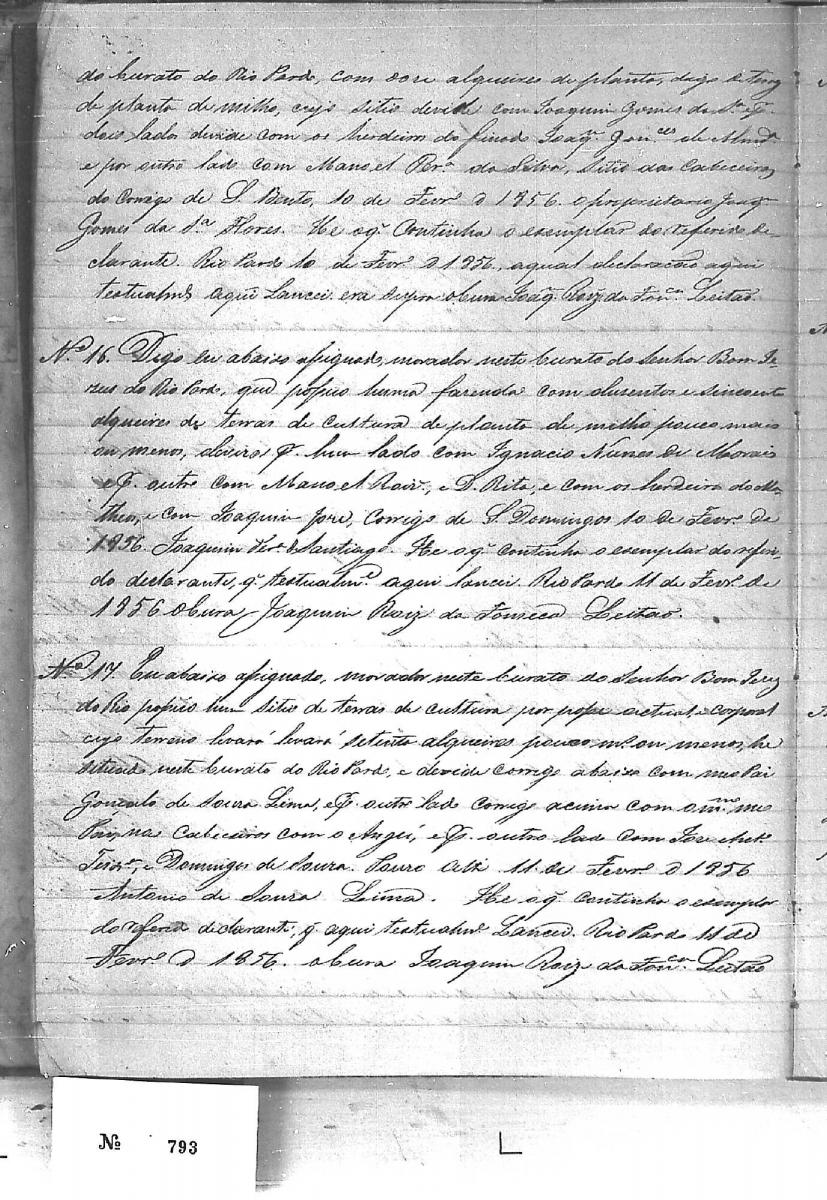 do Curato do Rio Pardo, com doze alqueires de planta, digo de terras
de planta de milho, cujo sitio devide com Joaquim Gomes da S.ª e p.
dois lados devide com os herdeiros do finado Joaq.m Gon.ces de
e por outro lado com Manoel Per.ª da Silva, sitio das Cabeceiras
do Corrigo de S. Bento, 10 de Fevr.o d 1856. o proprietario Joaq.m
Gomes da S.ª Flores. He o q̃ continha o exemplar do referido de-
clarante. Rio Pardo 10 de Fevr.o d 1856, aqual declaração aqui
textualm.e aqui Lancei. era supra o Cura Joaq.m Roiz da Fon.ca Leitão.
N.º 16. Digo eu abaixo asignado, morador neste Curato do Senhor Bom Je-
zus do Rio Pardo, que posuo huma fazenda com dusentos e sincoenta
alqueires de terras de cultura de planta de milho pouco mais
ou menos, devizo p. hum lado com Ignacio Nunes de Morais
e p. outro com Manoel Roiz, e D. Rita, e com os herdeiros do Ma-
theus, e com Joaquim José, Corrigo de S. Domingos 10 de Fevr.o de
1856. Joaquim Fer.ª de Santiago. He o q̃ continha o exemplar do referi-
do declarante, q̃ textualm.e aqui lancei. Rio Pardo 11 de Fevr.o de
1856 o Cura Joaquim Roiz da Fonseca Leitão.
N.º 17. Eu abaixo asignado, morador neste Curato do Senhor Bom Jezus
do Rio posuo hum sitio de terras de cultura por posse actual e corporal
cujo terreno levará levará setenta alqueires pouco m.s ou menos, he
situado neste Curato do Rio Pardo, e devide corrigo abaixo com meo Pai
Gonçalo de Souza Lima, e p. outro lado corrigo acima com o m.mo meo
Pai, na Cabeceiras com o Anges, e p. outro lado com Joze
e Domingos de Souza. Pouzo 11 de Fevr.o d 1856
Antonio de Souza Lima. He o q̃ continha o exemplar
do refered declarante, q̃ aqui textualm.e Lancei. Rio Pardo 11 de
Fevr.o d 1856. o Cura Joaquim Roiz da Fon.ca Leitão
Nº 793